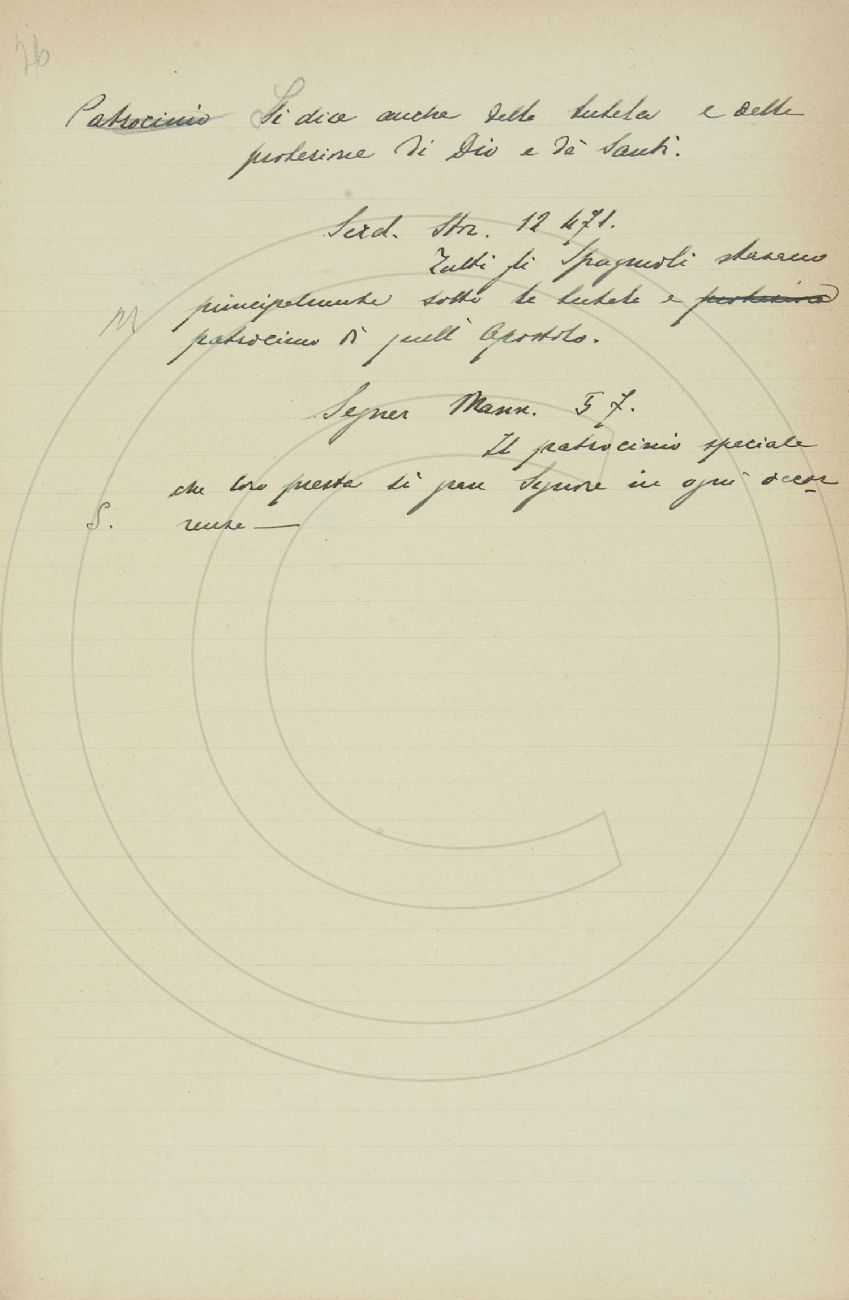 26
Patrocinio Si dice anche della tutela e della
protezione di Dio e de' Santi.
Serd. Stor. 12 471.
Tutti gli Spagnoli stavano
M principalmente sotto la tutela e protezione
patrocinio di quell' Apostolo.
Segner Mann. 5 7.
Il patrocinio speciale
che loro presta sì gran Signore in ogni occor
S. renze —